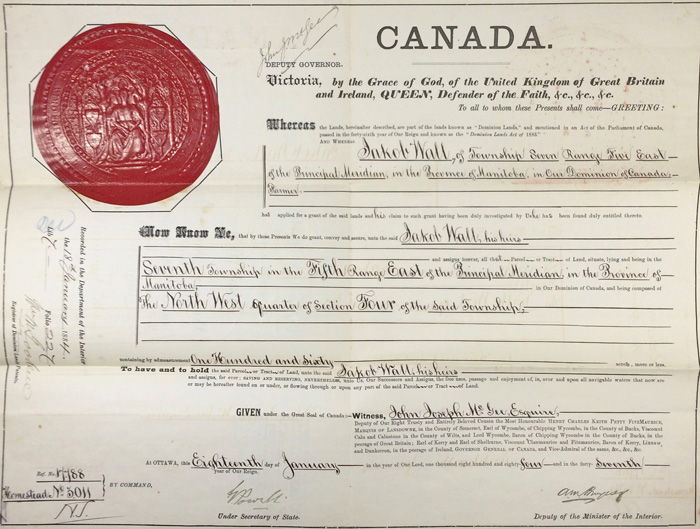 CANADA.
DEPUTY GOVERNOR.
Victoria, by the Grace of God, of the United Kingdom of Great Britain
and Ireland, QUEEN, Defender of the Faith, &c., &c., &c.
To all to whom these Presents shall come—GREETING:
Whereas the Lands, hereinafter described, are part of the lands known as "Dominion Lands," and mentioned in an Act of the Parliament of Canada,
passed in the forty-sixth year of Our Reign and known as the "Dominion Lands Act of 1883."
AND WHEREAS
Jakob Wall, of Township Seven Range Five East
of the Principal Meridian, in the Province of Manitoba, in Our Dominion of Canada
Farmer
has applied for a grant of the said lands and his claim to such grant having been duly investigated by Us he has been found duly entitled thereto.
Now Know Ye, that by these Presents We do grant, convey and assure, unto the said Jakob Wall, his heirs
and assigns forever, all that Parcel or Tract of Land, situate, lying and being in the
Seventh Township in the Fifth Range East of the Principal Meridian, in the Province of
Manitoba, in Our Dominion of Canada, and being composed of
The North West quarter of Section Four of the Said Township,
containing by admeasurement One Hundred and Sixty acres, more or less.
To have and to hold the said Parcel or Tract of Land, unto the said Jakob Wall, his heirs
and assigns, for ever; SAVING AND RESERVING, NEVERTHELESS, unto Us, Our Successors and Assigns, the free uses, passage and enjoyment of, in, over and upon all navigable waters that now are
or may be hereafter found on or under, or flowing through or upon any part of the said Parcel or Tract of Land.
GIVEN under the Great Seal of Canada:—Witness, John Joseph McGee Esquire,
Deputy of Our Right Trusty and Entirely Beloved Cousin the Most Honourable HENRY CHARLES KEITH PETTY FITZMAURICE,
MARQUIS OF LANSDOWNE, in the County of Somerset, Earl of Wycombe, of Chipping Wycombe, in the County of Bucks, Viscount
Caln and Calnstone in the County of Wilts, and Lord Wycombe, Baron of Chipping Wycombe in the County of Bucks, in the
peerage of Great Britain; Earl of Kerry and Earl of Shelburne, Viscount Clanmaurice and Fitzmaurice, Baron of Kerry, Lixnaw,
and Dunkerron, in the peerage of Ireland, GOVERNOR GENERAL OF CANADA, and Vice-Admiral of the same, &c., &c., &c.
AT OTTAWA, this Eighteenth day of January in the year of Our Lord, one thousand eight hundred and eighty-four and in the forty-Seventh
year of Our Reign.
BY COMMAND,
Under Secretary of State.
Deputy of the Minister of the Interior.
Ref. No. 
Homestead. No. 5011
Recorded in the Department of the Interior
the 18 January 1884
Folio 227
Registrar of Dominion Land Patents.